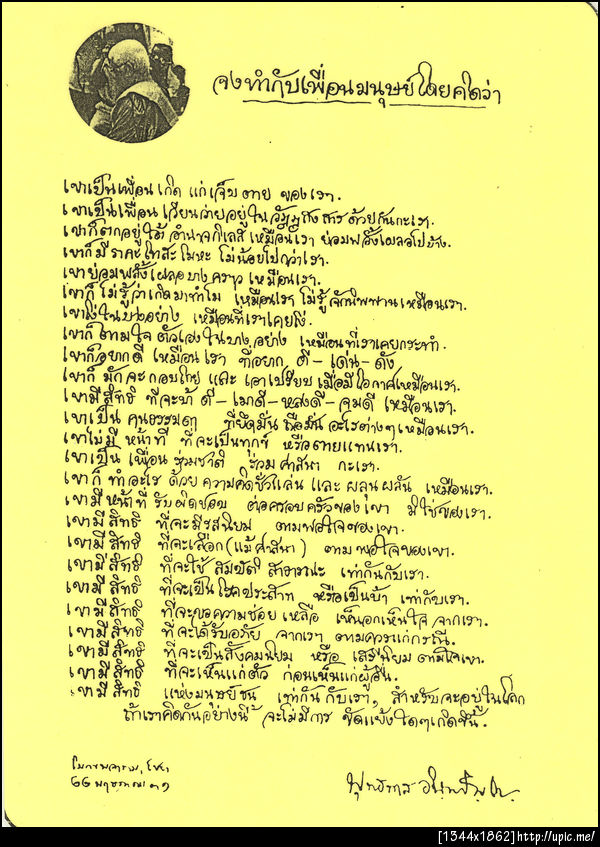 จงทำกับเพื่อนมนุษย์โดยคิดว่า
เขาเป็นเพื่อน เกิด แก่ เจ็บ ตาย ของเรา.
เขาเป็นเพื่อน เวียนว่ายอยู่ใน วัฏฏสงสาร ด้วยกันกะเรา.
เขาก็ตกอยู่ใต้ อำนาจกิเลส เหมือนเรา ย่อมพลั้งเผลอไปบ้าง.
เขาก็มี ราคะ โทสะ โมหะ ไม่น้อยไปกว่าเรา.
เขาย่อมพลั้งเผลอบางคราว เหมือนเรา.
เขาก็ ไม่รู้ว่าเกิดมาทำไม เหมือนเรา ไม่รู้จักนิพพานเหมือนเรา.
เขาโง่ในบางอย่าง เหมือนที่เราเคยโง่.
เขาก็ตามใจ ตัวเองในบางอย่าง เหมือนที่เราเคยกระทำ.
เขาก็อยากดี เหมือนเรา ที่อยาก ดี - เด่น - ดัง
เขาก็ มักจะกอบโกย และ เอาเปรียบ เมื่อมีโอกาสเหมือนเรา.
เขามีสิทธิ ที่จะบ้า ดี - เมาดี - หลงดี - จมดี เหมือนเรา.
เขาเป็น คนธรรมดา ที่ยึดมั่น ถือมั่น อะไรต่างๆเหมือนเรา.
เขาไม่มี หน้าที่ ที่จะเป็นทุกข์ หรือตายแทนเรา.
เขาเป็น เพื่อน ร่วมชาติ ร่วม ศาสนา กะเรา.
เขาก็ ทำอะไร ด้วย ความคิดชั่วแล่น และ ผลุนผลัน เหมือนเรา.
เขามีหน้าที่ รับผิดชอบ ต่อครอบครัวของเขา มิใช่ของเรา.
เขามี สิทธิ ที่จะมีรสนิยม ตามพอใจของเขา.
เขามี สิทธิ ที่จะเลือก (แม้ศาสนา) ตามพอใจของเขา.
เขามี สิทธิ ที่จะใช้ สมบัติ สาธารณะ เท่ากันกับเรา.
เขามี สิทธิ ที่จะเป็นโรคประสาท หรือเป็นบ้า เท่ากับเรา.
เขามี สิทธิ ที่จะขอความช่วยเหลือ เห็นอกเห็นใจ จากเรา.
เขามี สิทธิ ที่จะได้รับอภัย จากเรา ตามควรแก่กรณี.
เขามี สิทธิ ที่จะเป็นสังคมนิยม หรือ เสรีนิยม ตามใจเขา.
เขามี สิทธิ ที่จะเห็นแก่ตัว ก่อนเห็นแก่ผู้อื่น.
เขามี สิทธิ แห่งมนุษย์ชน เท่ากันกับเรา, สำหรับจะอยู่ในโลก
ถ้าเราคิดกันอย่างนี้ จะไม่มีการ ขัดแย้งใดๆเกิดขึ้น.
โมกขพลาราม, ไชยา
๒๒ พฤษภาคม ๓๑
พุทธทาส อินทปัญโญ
[1344x1862]http://upic.me/